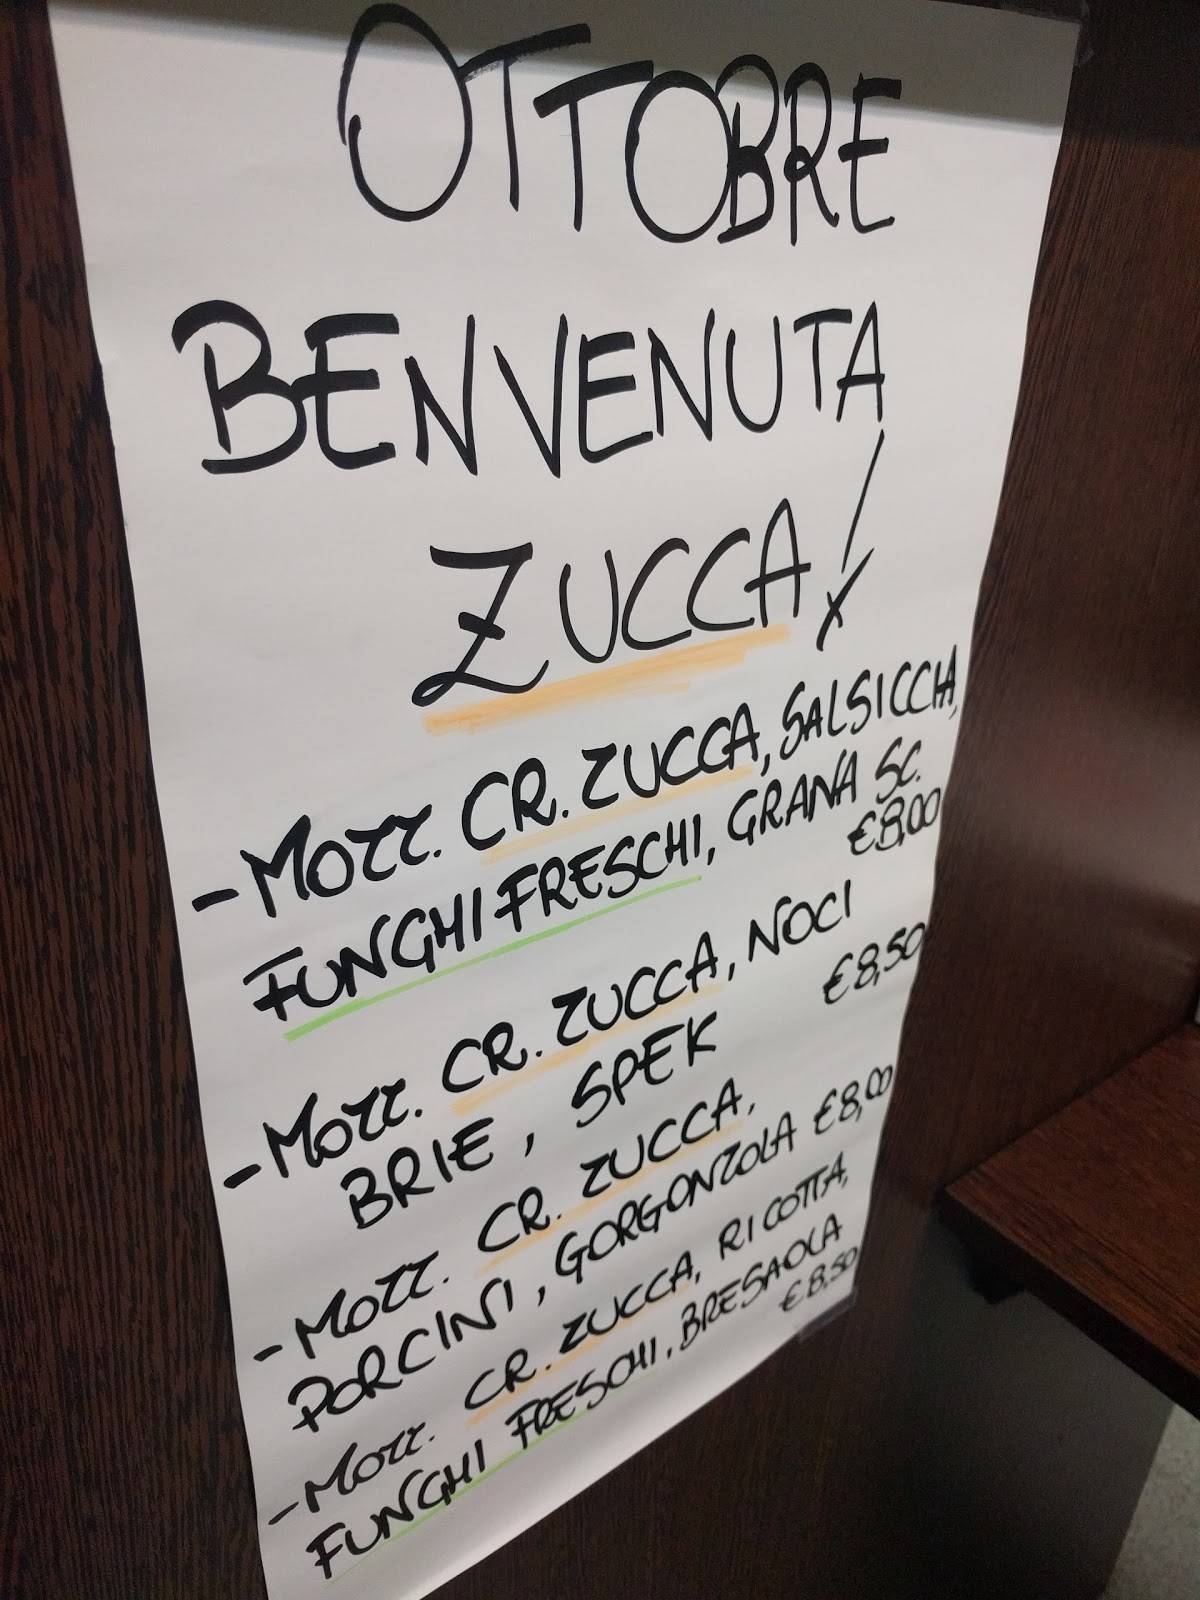 OTTOBRE
BENVENUTA
ZUCCA!
- MOZZ. CR. ZUCCA, SALSICCIA,
FUNGHI FRESCHI, GRANA SC.
€8,00
- MOZZ. CR. ZUCCA, NOCI
BRIE, SPEK €8,50
- MOZZ. CR. ZUCCA,
PORCINI, GORGONZOLA €8,00
- MOZZ. CR. ZUCCA, RICOTTA,
FUNGHI FRESCHI, BRESAOLA
€8,50